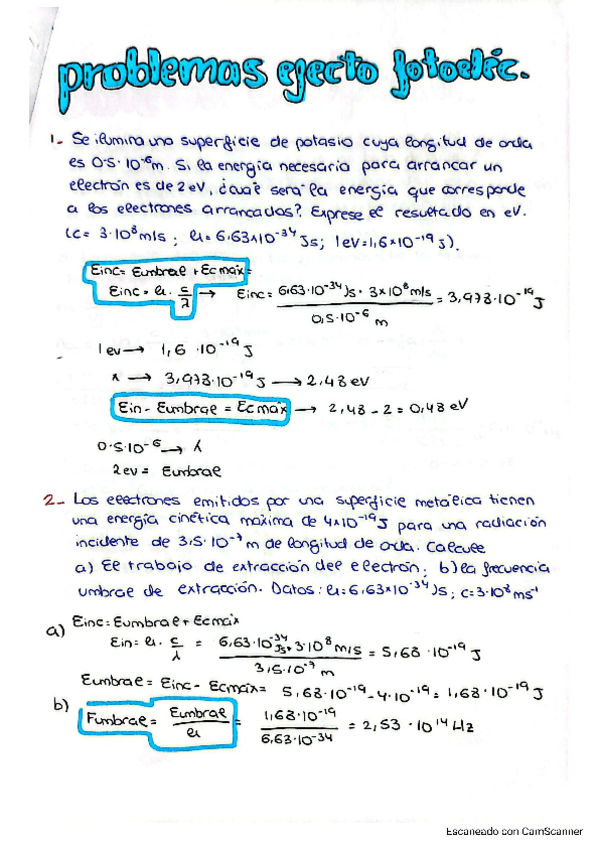 problemas efecto fotoeléc.
1- Se ilumina una superficie de potasio cuya longitud de onda
es 0'5·10⁻⁶m. Si la energía necesaria para arrancar un
electrón es de 2 eV, ¿cuál será la energía que corresponde
a los electrones arrancados? Exprese el resultado en eV.
(c= 3·10⁸m/s ; h= 6'63×10⁻³⁴ Js; 1eV=1,6×10⁻¹⁹ J).
Einc= Eumbral + Ecmáx=
Einc= h · c/λ → Einc= 6'63·10⁻³⁴ Js · 3×10⁸m/s / 0,5·10⁻⁶ m = 3,978·10⁻¹⁹ J
1 ev → 1,6 ·10⁻¹⁹ J
x → 3,978·10⁻¹⁹ J → 2,48 eV
Ein - Eumbral = Ecmáx → 2,48 - 2 = 0,48 eV
0'5·10⁻⁶ → λ
2 ev = Eumbral
2- Los electrones emitidos por una superficie metálica tienen
una energía cinética máxima de 4×10⁻¹⁹ J para una radiación
incidente de 3'5·10⁻⁷ m de longitud de onda. Calcule
a) El trabajo de extracción del electrón; b) la frecuencia
umbral de extracción. Datos: h=6'63×10⁻³⁴ Js ; c=3·10⁸ ms⁻¹
a) Einc=Eumbral+Ecmáx
Ein= h · c/λ = 6,63·10⁻³⁴ Js · 3·10⁸ m/s / 3,5·10⁻⁷ m = 5,68·10⁻¹⁹ J
Eumbral = Einc - Ecmáx = 5,68·10⁻¹⁹ - 4·10⁻¹⁹ = 1,68·10⁻¹⁹ J
b) Fumbral = Eumbral / h = 1,68·10⁻¹⁹ / 6,63·10⁻³⁴ = 2,53 · 10¹⁴ Hz
Escaneado con CamScanner